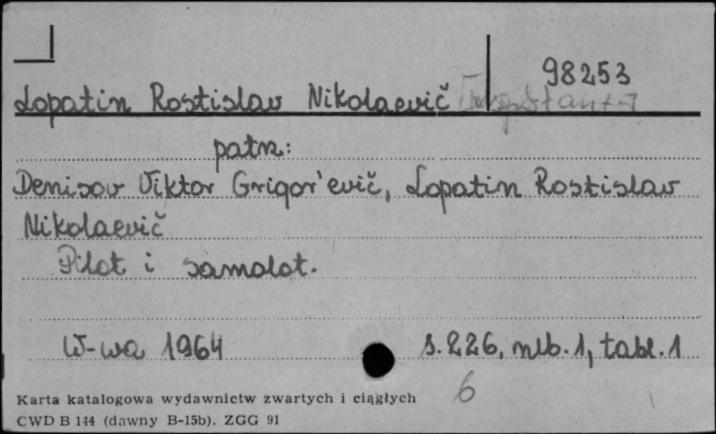 98253
Lopatin Rostislav Nikolaevič
patrz:
Denisov Viktor Grigor'evič, Lopatin Rostislav
Nikolaevič
Pilot i samolot.
W-wa 1964 s.226, nlb.1, tabl.1
6
Karta katalogowa wydawnictw zwartych i ciągłych
CWD B 144 (dawny B-15b). ZGG 91